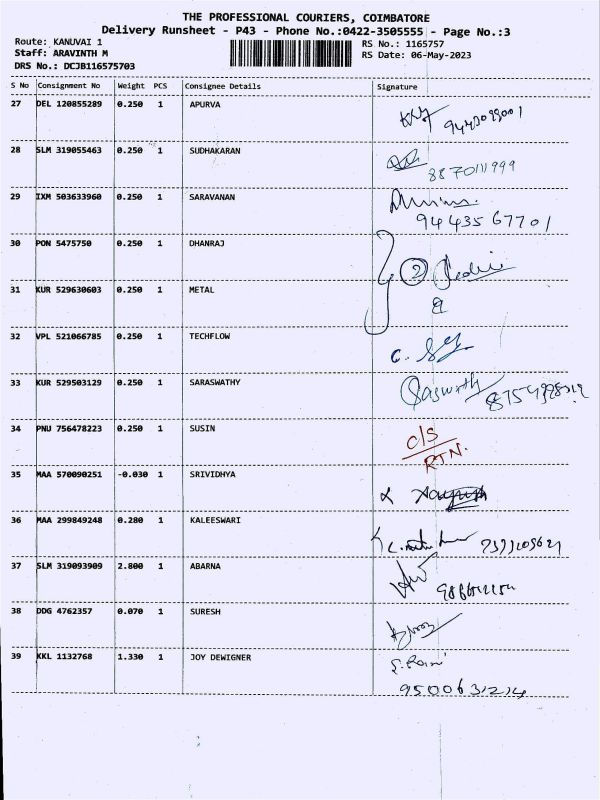 THE PROFESSIONAL COURIERS, COIMBATORE
Delivery Runsheet - P43 - Phone No.:0422-3505555 - Page No.:3
Route: KANUVAI 1 RS No.: 1165757
Staff: ARAVINTH M RS Date: 06-May-2023
DRS No.: DCJB116575703
S No Consignment No Weight PCS Consignee Details Signature
27 DEL 120855289 0.250 1 APURVA
28 SLM 319055463 0.250 1 SUDHAKARAN
8870111999
29 IXM 503633960 0.250 1 SARAVANAN
9443567701
30 PON 5475750 0.250 1 DHANRAJ
2
31 KUR 529630603 0.250 1 METAL
32 VPL 521066785 0.250 1 TECHFLOW
33 KUR 529503129 0.250 1 SARASWATHY
34 PNU 756478223 0.250 1 SUSIN
C/S
RTN.
35 MAA 570090251 -0.030 1 SRIVIDHYA
36 MAA 299849248 0.280 1 KALEESWARI
37 SLM 319093909 2.800 1 ABARNA
38 DDG 4762357 0.070 1 SURESH
39 KKL 1132768 1.330 1 JOY DEWIGNER
9500631214